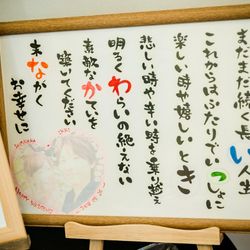 まだまだ続く長い人生
これからはふたりでいっしょに
楽しい時や嬉しいとき
悲しい時や辛い時も乗り越え
明るくわらいの絶えない
素敵なかていを
築いてください
末ながく
お幸せに